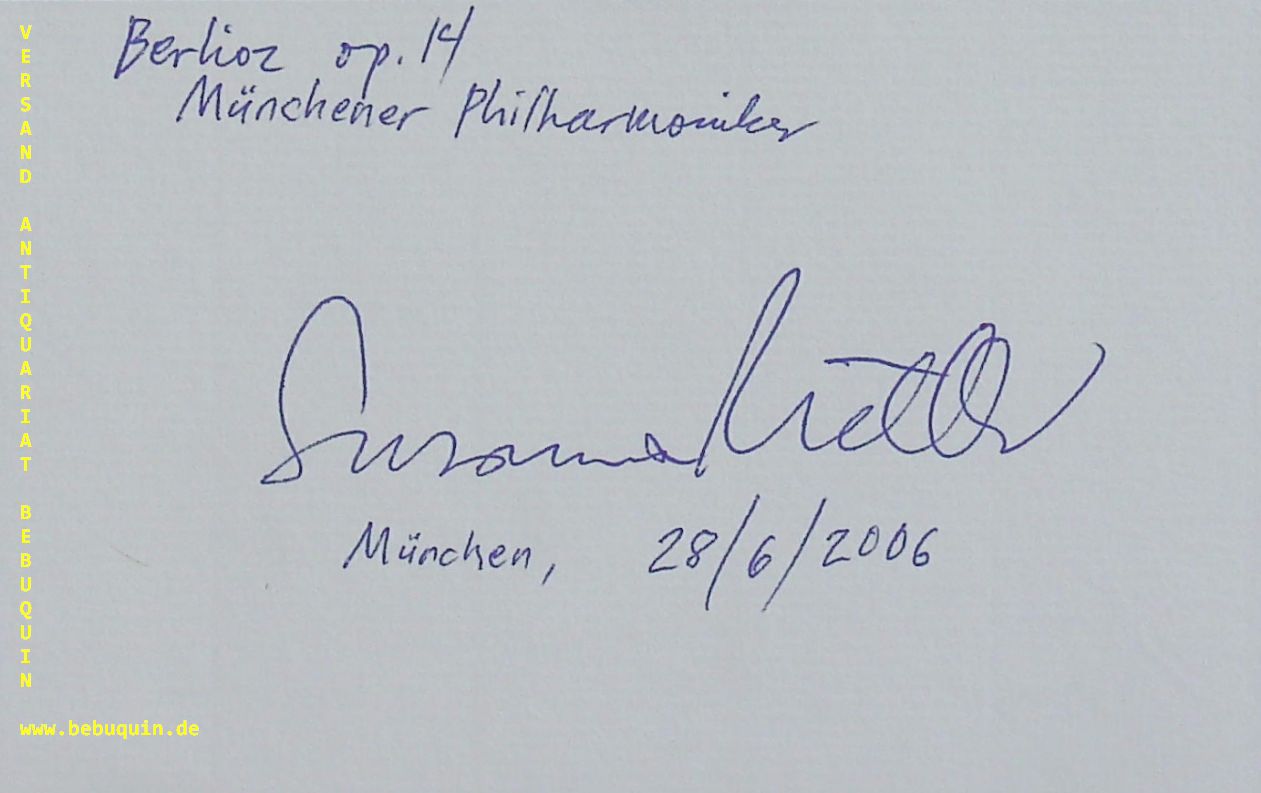 Berlioz op. 14
Münchener Philharmoniker
Susanna Mälkki
München, 28/6/2006
VERSAND ANTIQUARIAT BEBUQUIN
www.bebuquin.de